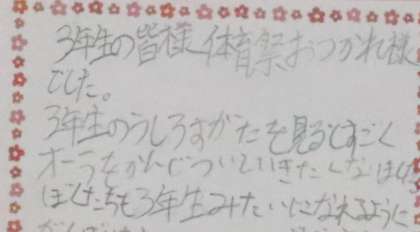 3年生の皆様体育祭おつかれ様
でした。
3年生のうしろすがたを見るとすごく
オーラをかんじついていきたくなりました
ぼくたちも3年生みたいになれるように